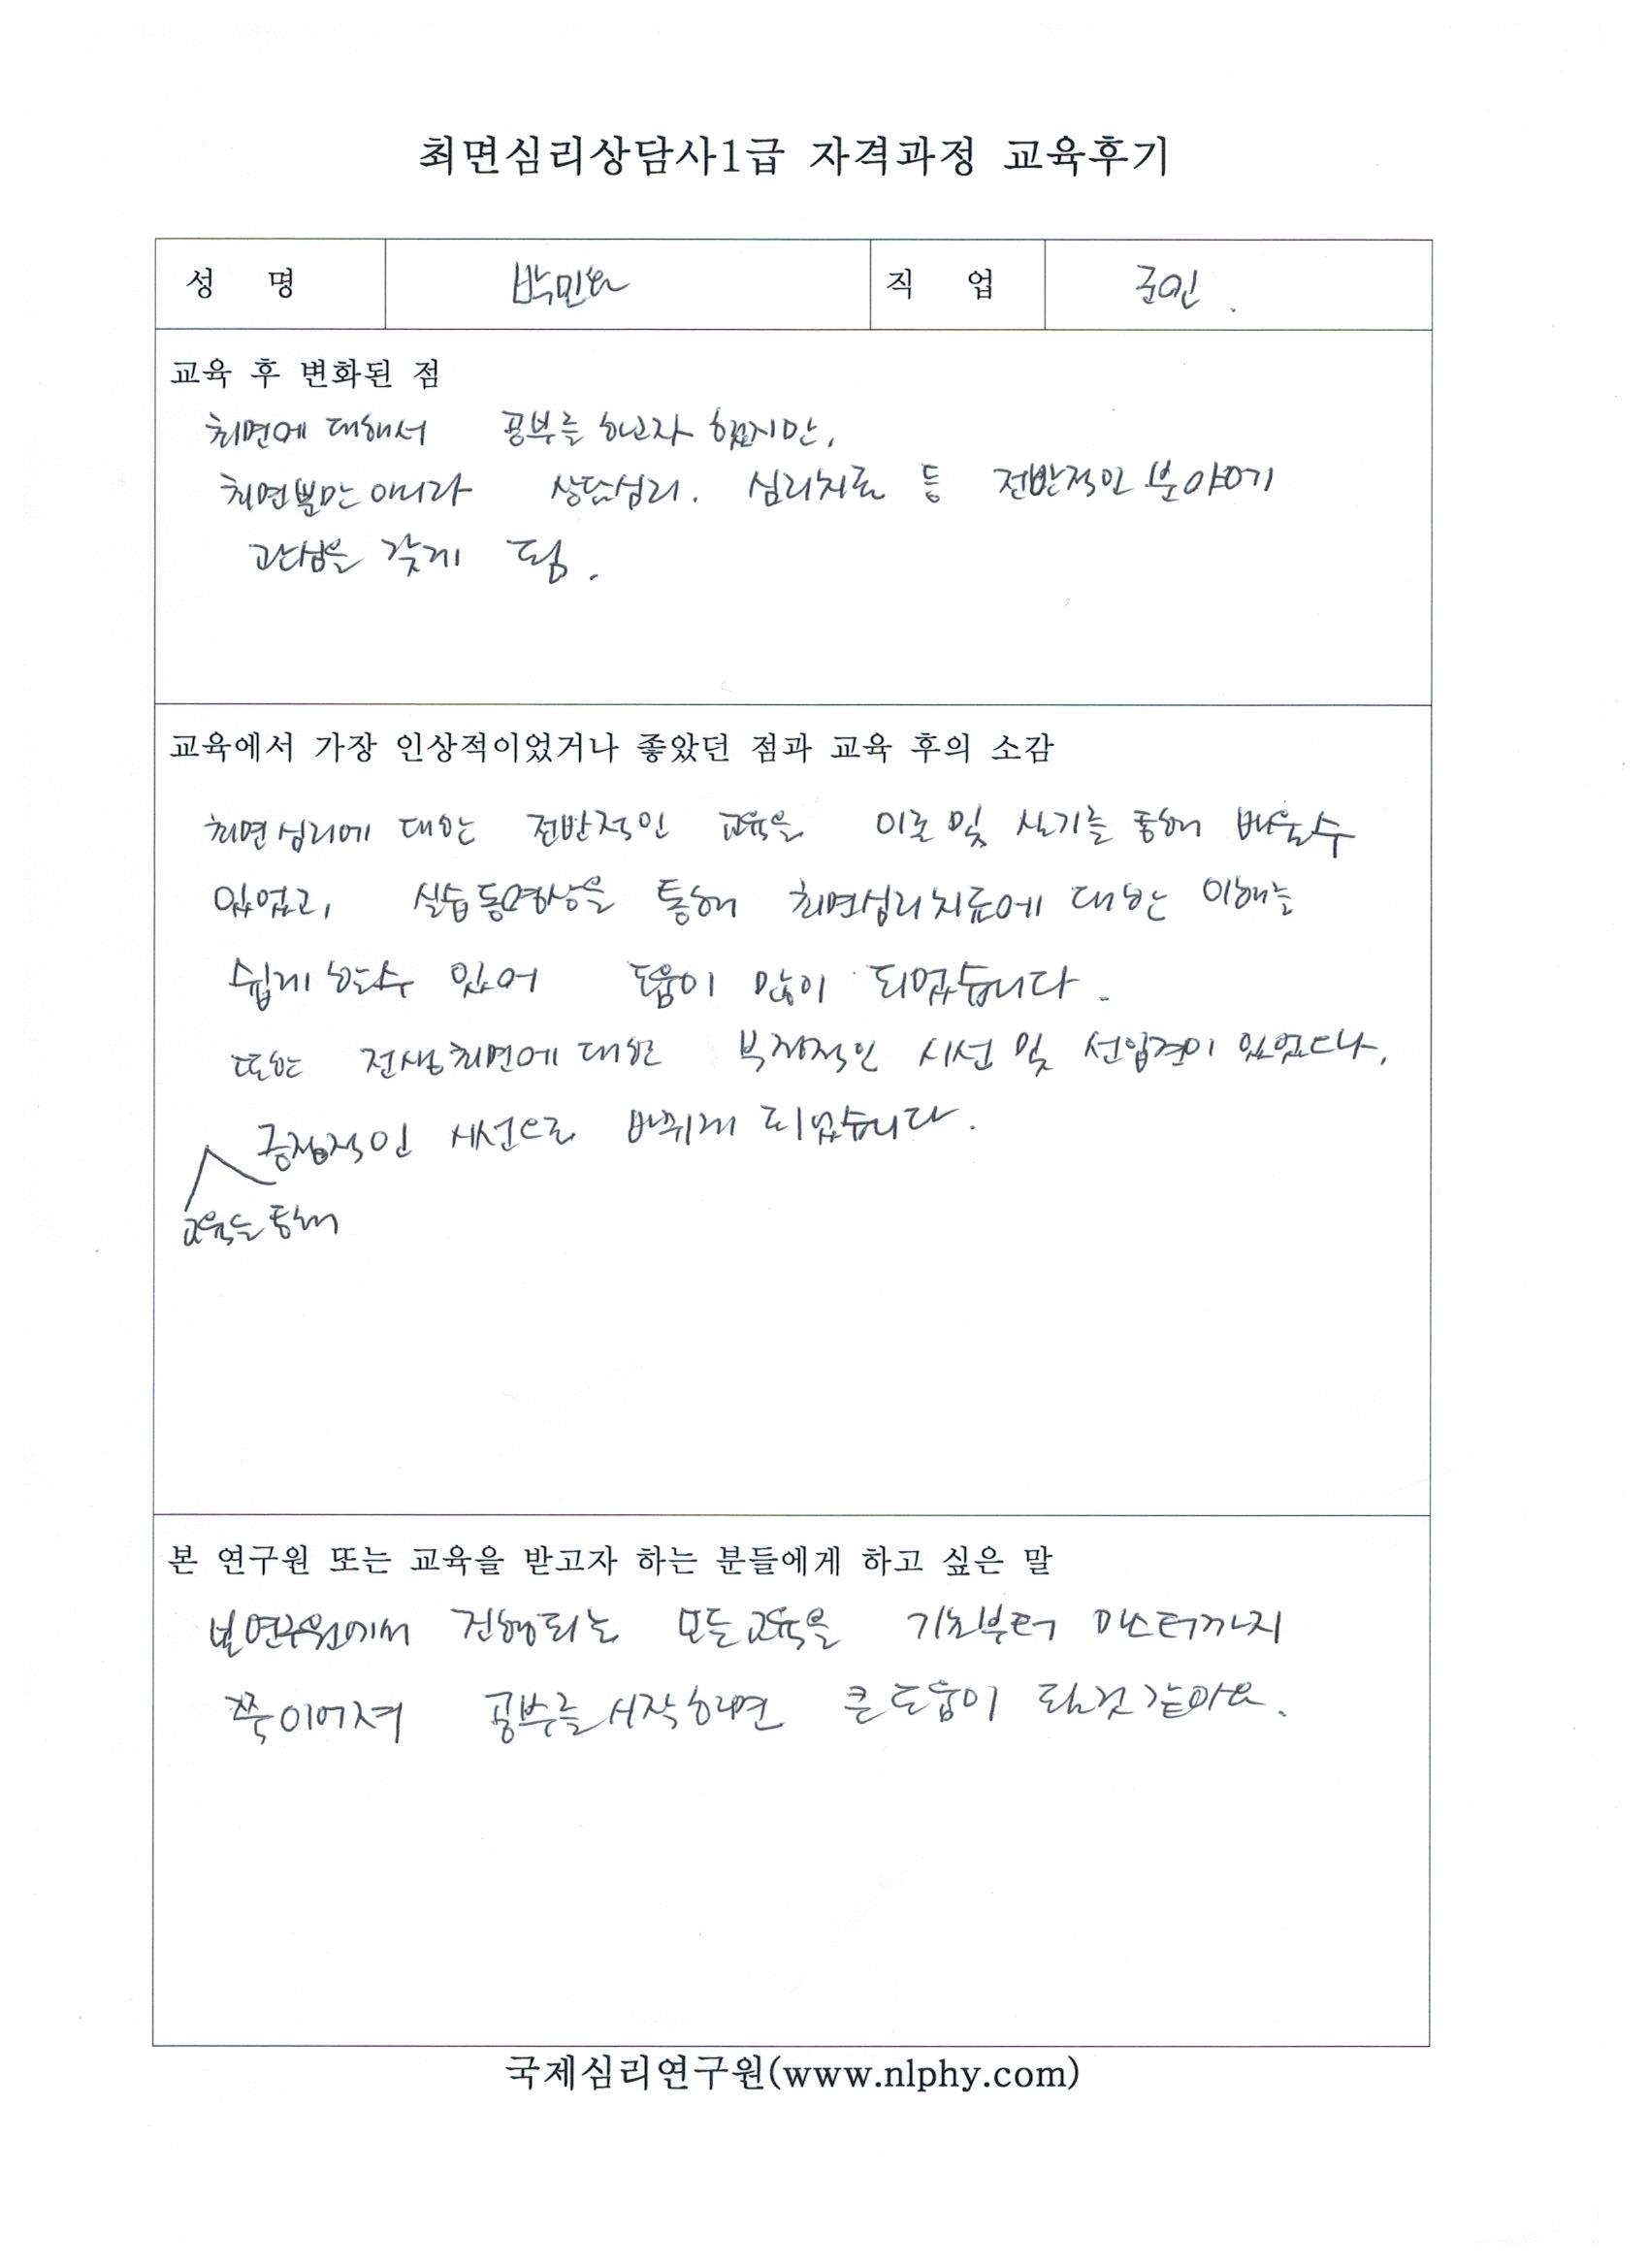 최면심리상담사1급 자격과정 교육후기
성 명 박민 직 업 군인.
교육 후 변화된 점
최면에 대해서 공부를 하고자 했지만,
최면뿐만 아니라 상담심리. 심리치료 등 전반적인 분야에
관심을 갖게 됨.
교육에서 가장 인상적이었거나 좋았던 점과 교육 후의 소감
최면심리에 대한 전반적인 교육을 이론 및 실기를 통해 배울수
있었고, 실습동영상을 통해 최면심리치료에 대한 이해를
쉽게 할수 있어 도움이 많이 되었습니다.
또한 전생최면에 대한 부정적인 시선 및 선입견이 있었으나,
긍정적인 시선으로 바뀌게 되었습니다.
교육을 통해
본 연구원 또는 교육을 받고자 하는 분들에게 하고 싶은 말
본연구원에서 진행되는 모든교육을 기초부터 마스터까지
쭉이어져 공부를 시작하면 큰 도움이 될것 같아요.
국제심리연구원(www.nlphy.com)